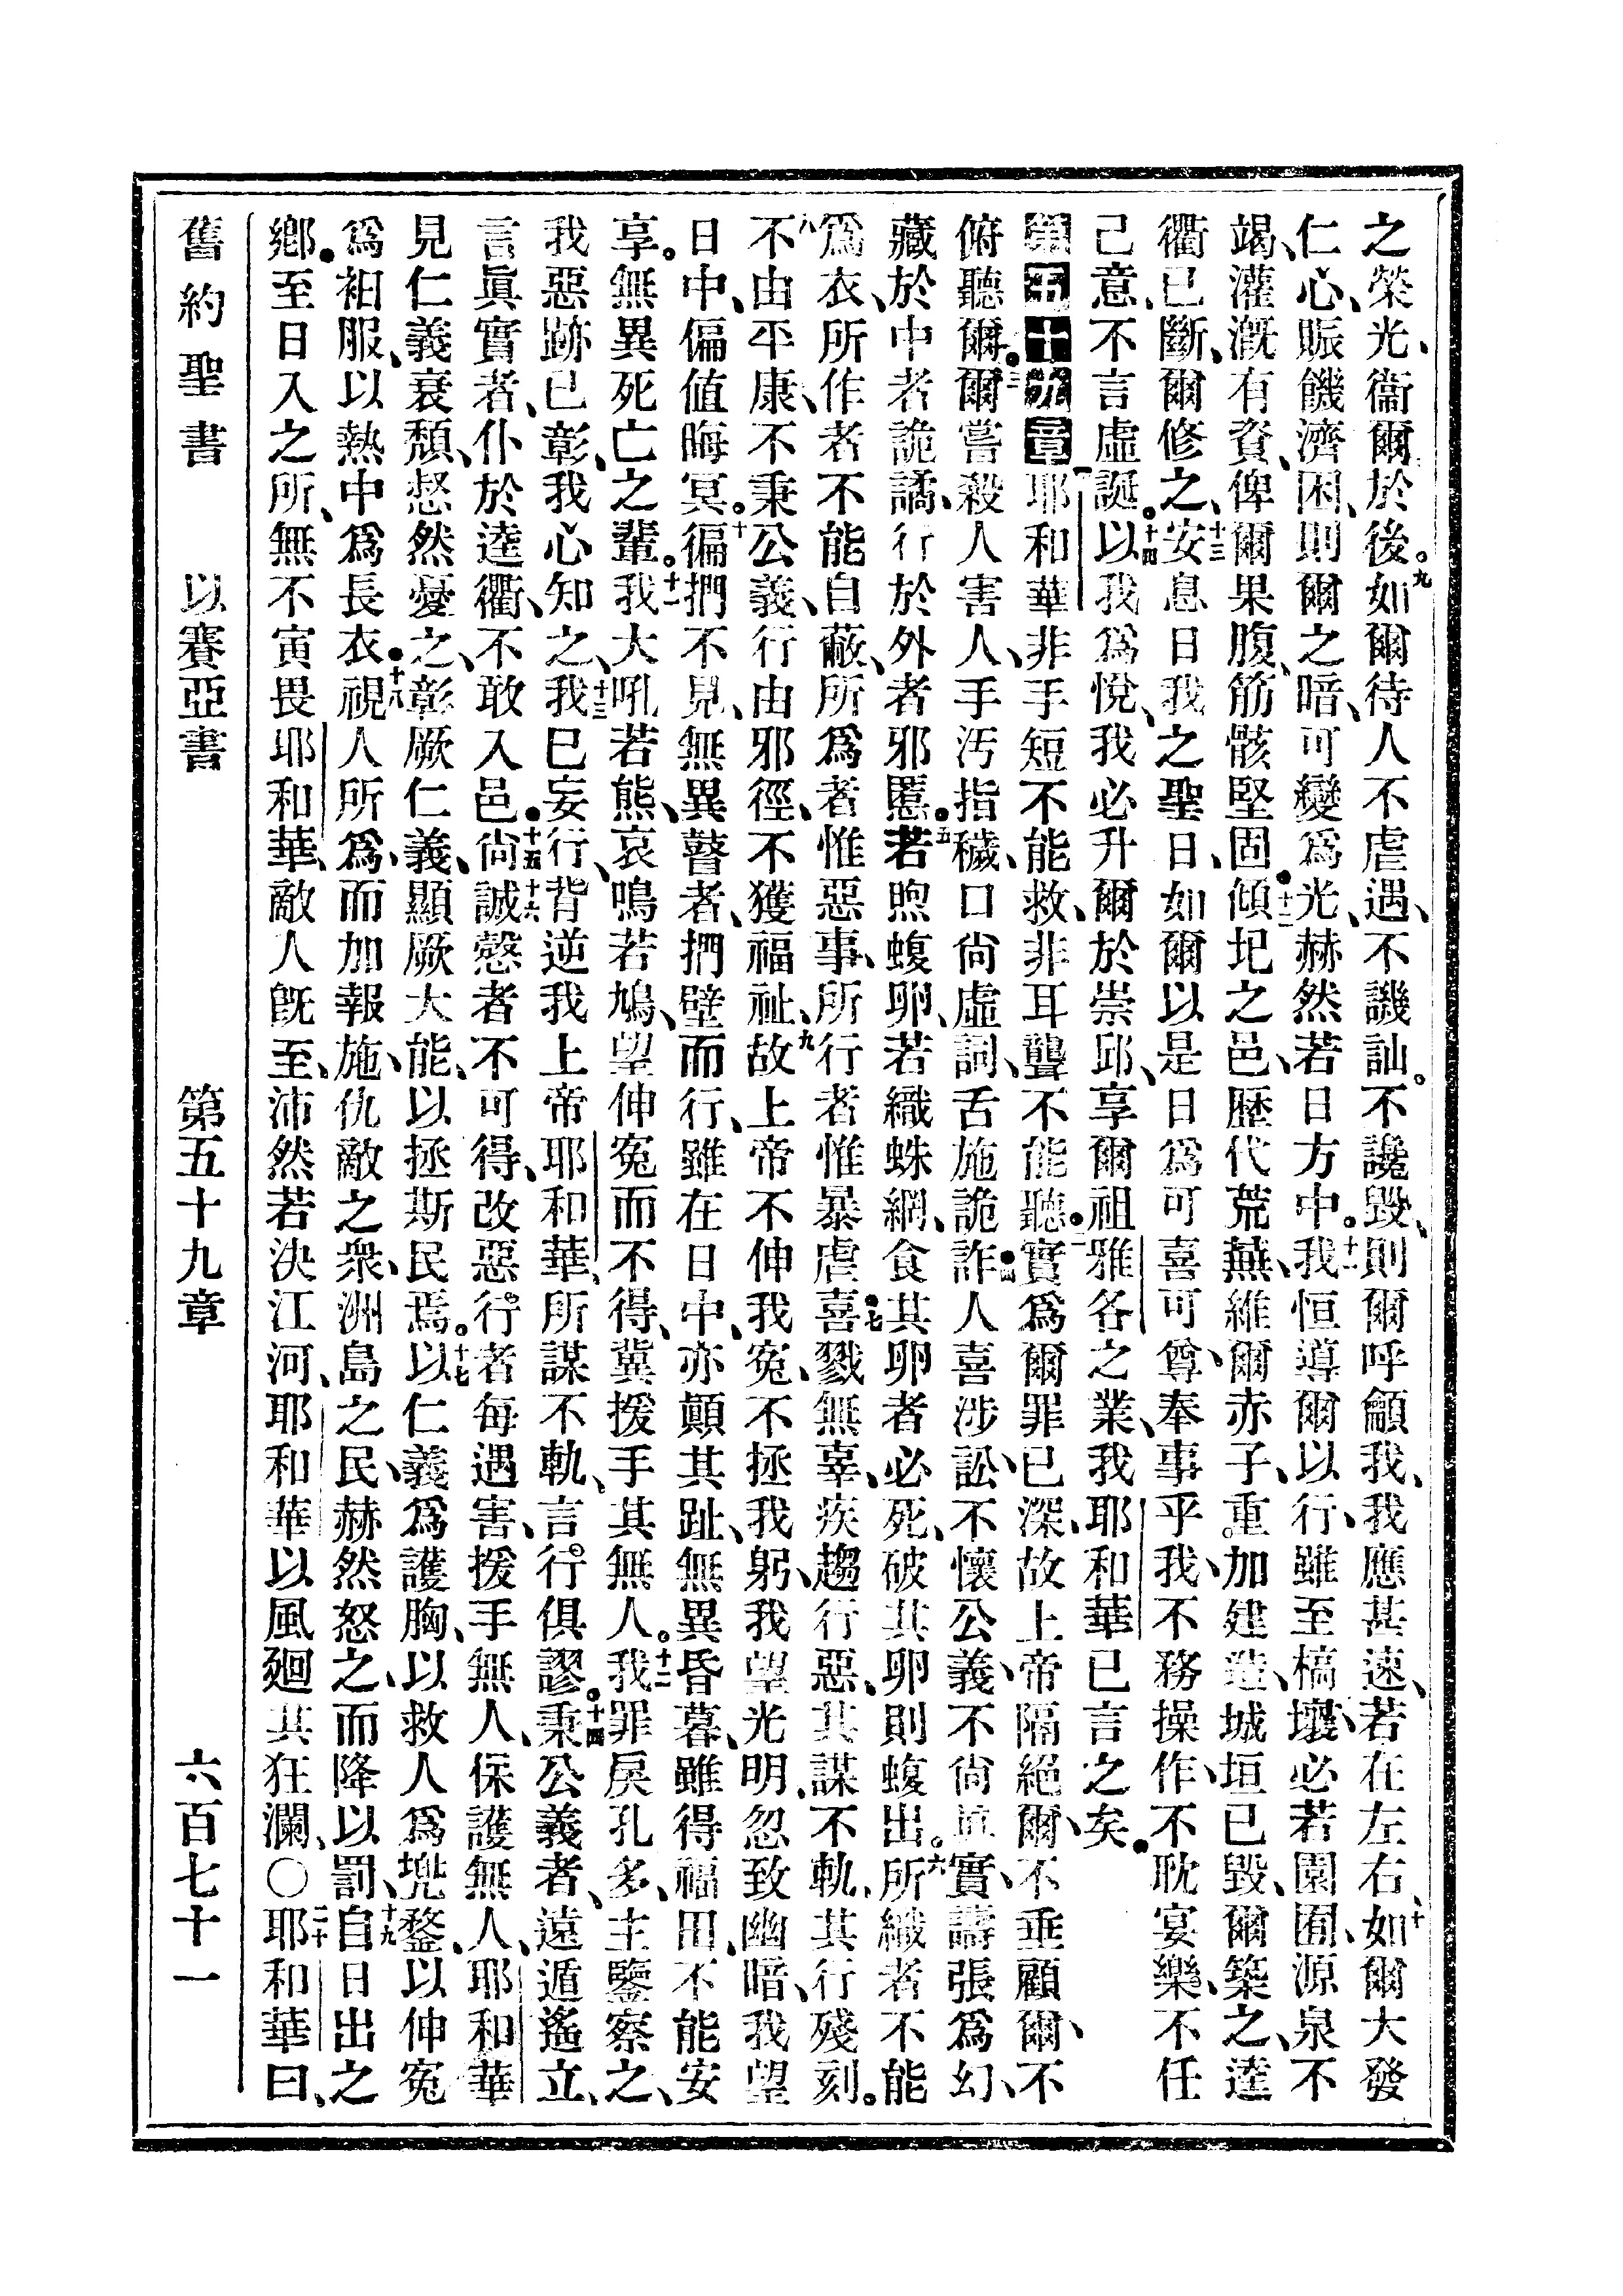 之榮光、衞爾於後。九如爾待人不虐遇、不譏訕。不讒毀、則爾呼籲我、我應甚速、若在左右、十如爾大發
仁心、賑饑濟困、則爾之暗、可變爲光、赫然若日方中。十一我恒導爾以行、雖至槁壤、必若園囿、源泉不
竭、灌溉有資、俾爾果腹、筋骸堅固。十二傾圯之邑、歷代荒蕪、維爾赤子、重加建造、城垣已毀、爾築之、逵
衢已斷、爾修之、十三安息日我之聖日、如爾以是日爲可喜可尊、奉事乎我、不務操作、不耽宴樂、不任
己意、不言虛誕。十四以我爲悅、我必升爾於崇邱、享爾祖雅各之業、我耶和華已言之矣。
第五十九章一耶和華非手短不能救、非耳聾不能聽。二實爲爾罪已深、故上帝隔絕爾、不垂顧爾、不
俯聽爾。三爾嘗殺人害人、手汚指穢、口尙虛詞、舌施詭詐。四人喜涉訟、不懷公義、不尙眞實、譸張爲幻、
藏於中者詭譎、行於外者邪慝。五若煦蝮卵、若織蛛網、食其卵者必死、破其卵則蝮出。六所織者不能
爲衣、所作者不能自蔽、所爲者惟惡事、所行者惟暴虐。七喜戮無辜、疾趨行惡、其謀不軌、其行殘刻。
八不由平康、不秉公義、行由邪徑、不獲福祉、九故上帝不伸我冤、不拯我躬、我望光明、忽致幽暗、我望
日中、偏值晦冥。十徧捫不見、無異瞽者、捫壁而行、雖在日中、亦顚其趾、無異昏暮、雖得福田、不能安
享。無異死亡之輩。十一我大吼若熊、哀鳴若鳩、望伸冤而不得、冀援手其無人。十二我罪戾孔多、主鑒察之、
我惡跡已彰、我心知之、十三我已妄行、背逆我上帝耶和華、所謀不軌、言行俱謬。十四秉公義者、遠遁遙立、
言眞實者、仆於逵衢、不敢入邑。十五尙誠慤者不可得、改惡行者每遇害、十六援手無人、保護無人、耶和華
見仁義衰頹、惄然憂之、彰厥仁義、顯厥大能、以拯斯民焉。十七以仁義爲護胸、以救人爲兜鍪、以伸冤
爲衵服、以熱中爲長衣。十八視人所爲、而加報施、仇敵之衆、洲島之民、赫然怒之、而降以罰、十九自日出之
鄉、至日入之所、無不寅畏耶和華、敵人旣至、沛然若決江河、耶和華以風廻其狂瀾、〇二十耶和華曰、
舊約聖書 以賽亞書 第五十九章 六百七十一